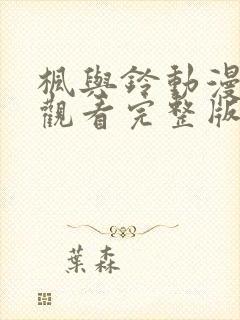 楓與鈴動漫
觀看完整版
葉森